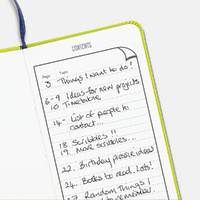 CONTENTS
Page Topic
3 Things I want to do!
6-9 Ideas for new projects
10 Timetable
14- List of people to
contact...
18 Scribbles!!
19 More scribbles...
22. Birthday present ideas
24. Books to read. Lots!
27 Random Things I
to remember